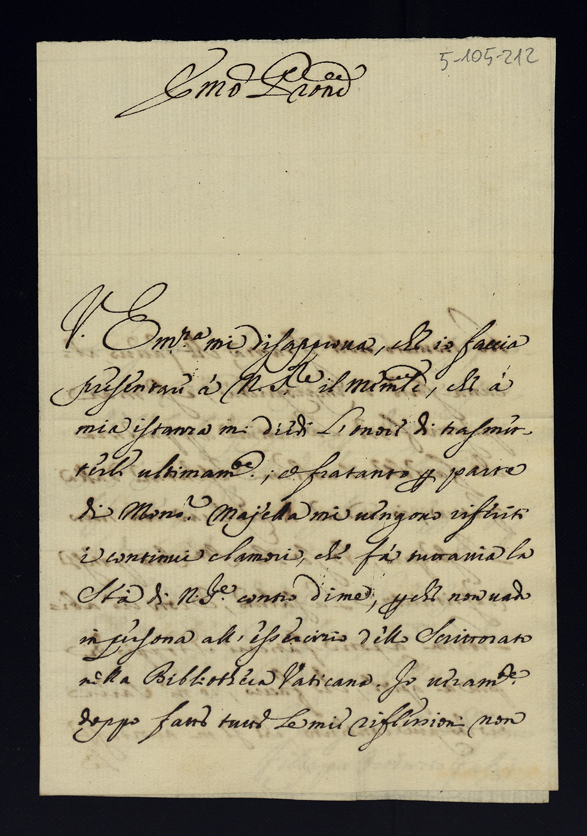 5-105-212
Emo Prone
V. Em.ra mi disapprova, che io faccia
presentare à N. S.re il memle, che à
mia istanza mi diedi l'onore di trasmet-
terle ultimam.te; e fratanto p parte
di Mons.r Majella mi vengono riferiti
i continui clamori, che fà tuttavia la
Stà di N. S.re contro di me, p che non vado
in persona all'essercizio dello Scrittorato
nella Bibliotheca Vaticana. Io veram.te
doppo fatte tutte le mie riflessioni non